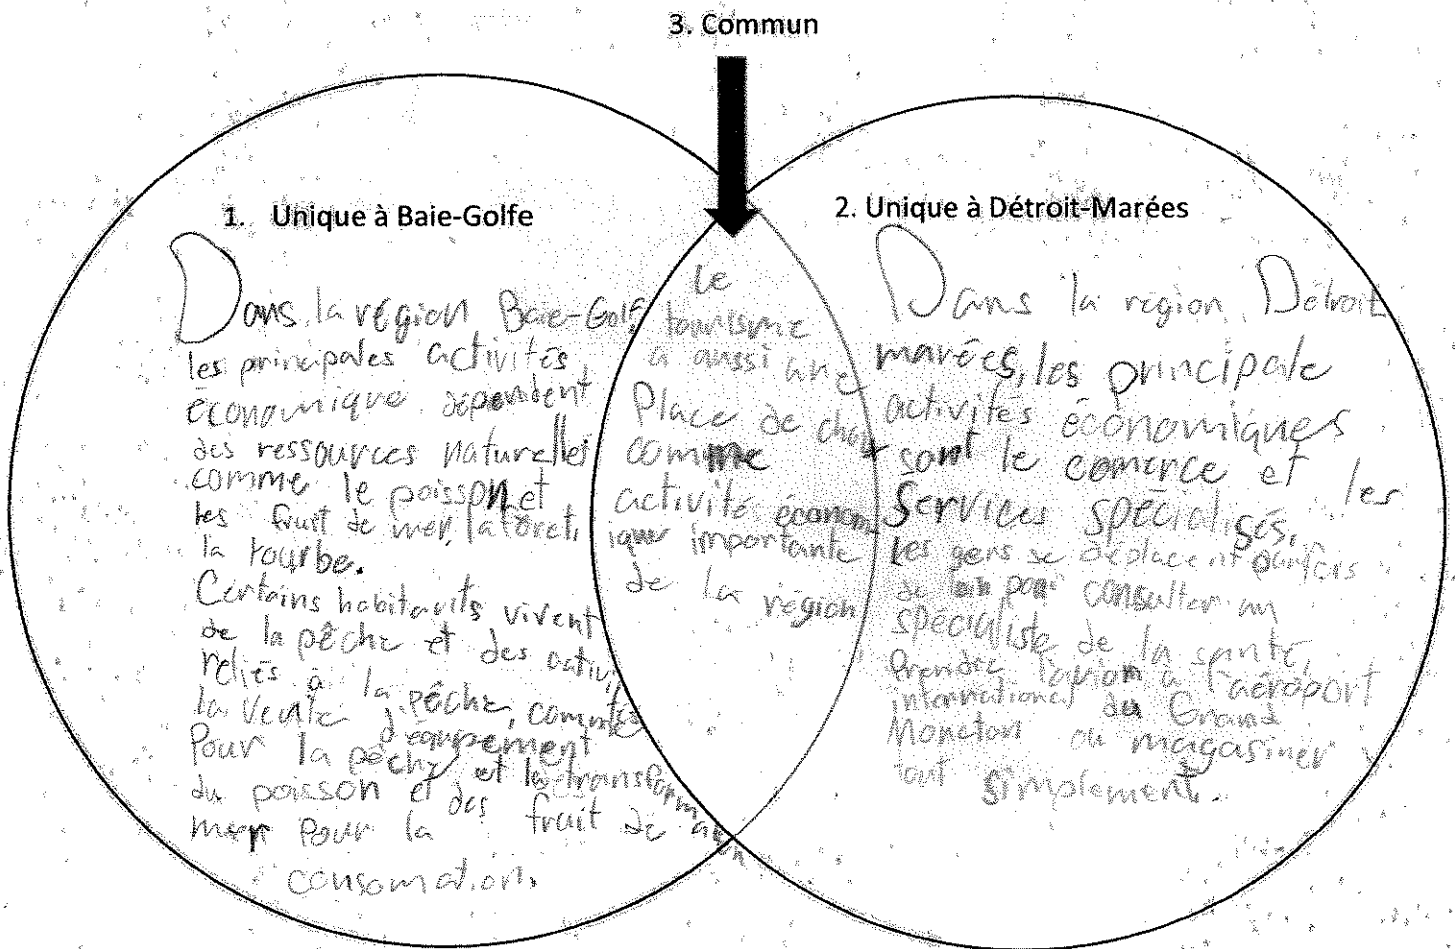 3. Commun
1. Unique à Baie-Golfe
Dans la région Baie-Golfe
les principales activités
économique dépendent
des ressources naturelles
comme le poisson et
les fruit de mer, la forêt,
la tourbe.
Certains habitants vivent
de la pêche et des activités
reliés à la pêche, comme
la vente d'équipement
Pour la pêche et la transformation
du poisson et des fruit de
mer Pour la
consomation.
Le
tourisme
a aussi une
Place de choix
comme
activité économ
ique importante
de la région
2. Unique à Détroit-Marées
Dans la région Détroit
marées, les principale
activités économiques
sont le comerce et les
Services spécialisés.
Les gens se déplacent parfois
de loin pour consulter un
spécialiste de la santé,
Prendre l'avion a l'aéroport
international du Grand
Moncton ou magasiner
tout simplement.